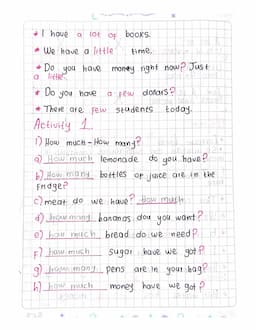 * I have a lot of books.
* We have a little time.
* Do you have money right now? Just
a little
* Do you have a few dolars?
* There are few students today.
Activity 1
1) How much - How many?
a) How much lemonade do you have?
b) How many bottles of juice are in the
fridge?
c) meat do we have? How much
d) how many bananas dou you want?
e) how much bread do we need?
f) how much sugar have we got?
g) how many pens are in your bag?
h) how much money have we got?